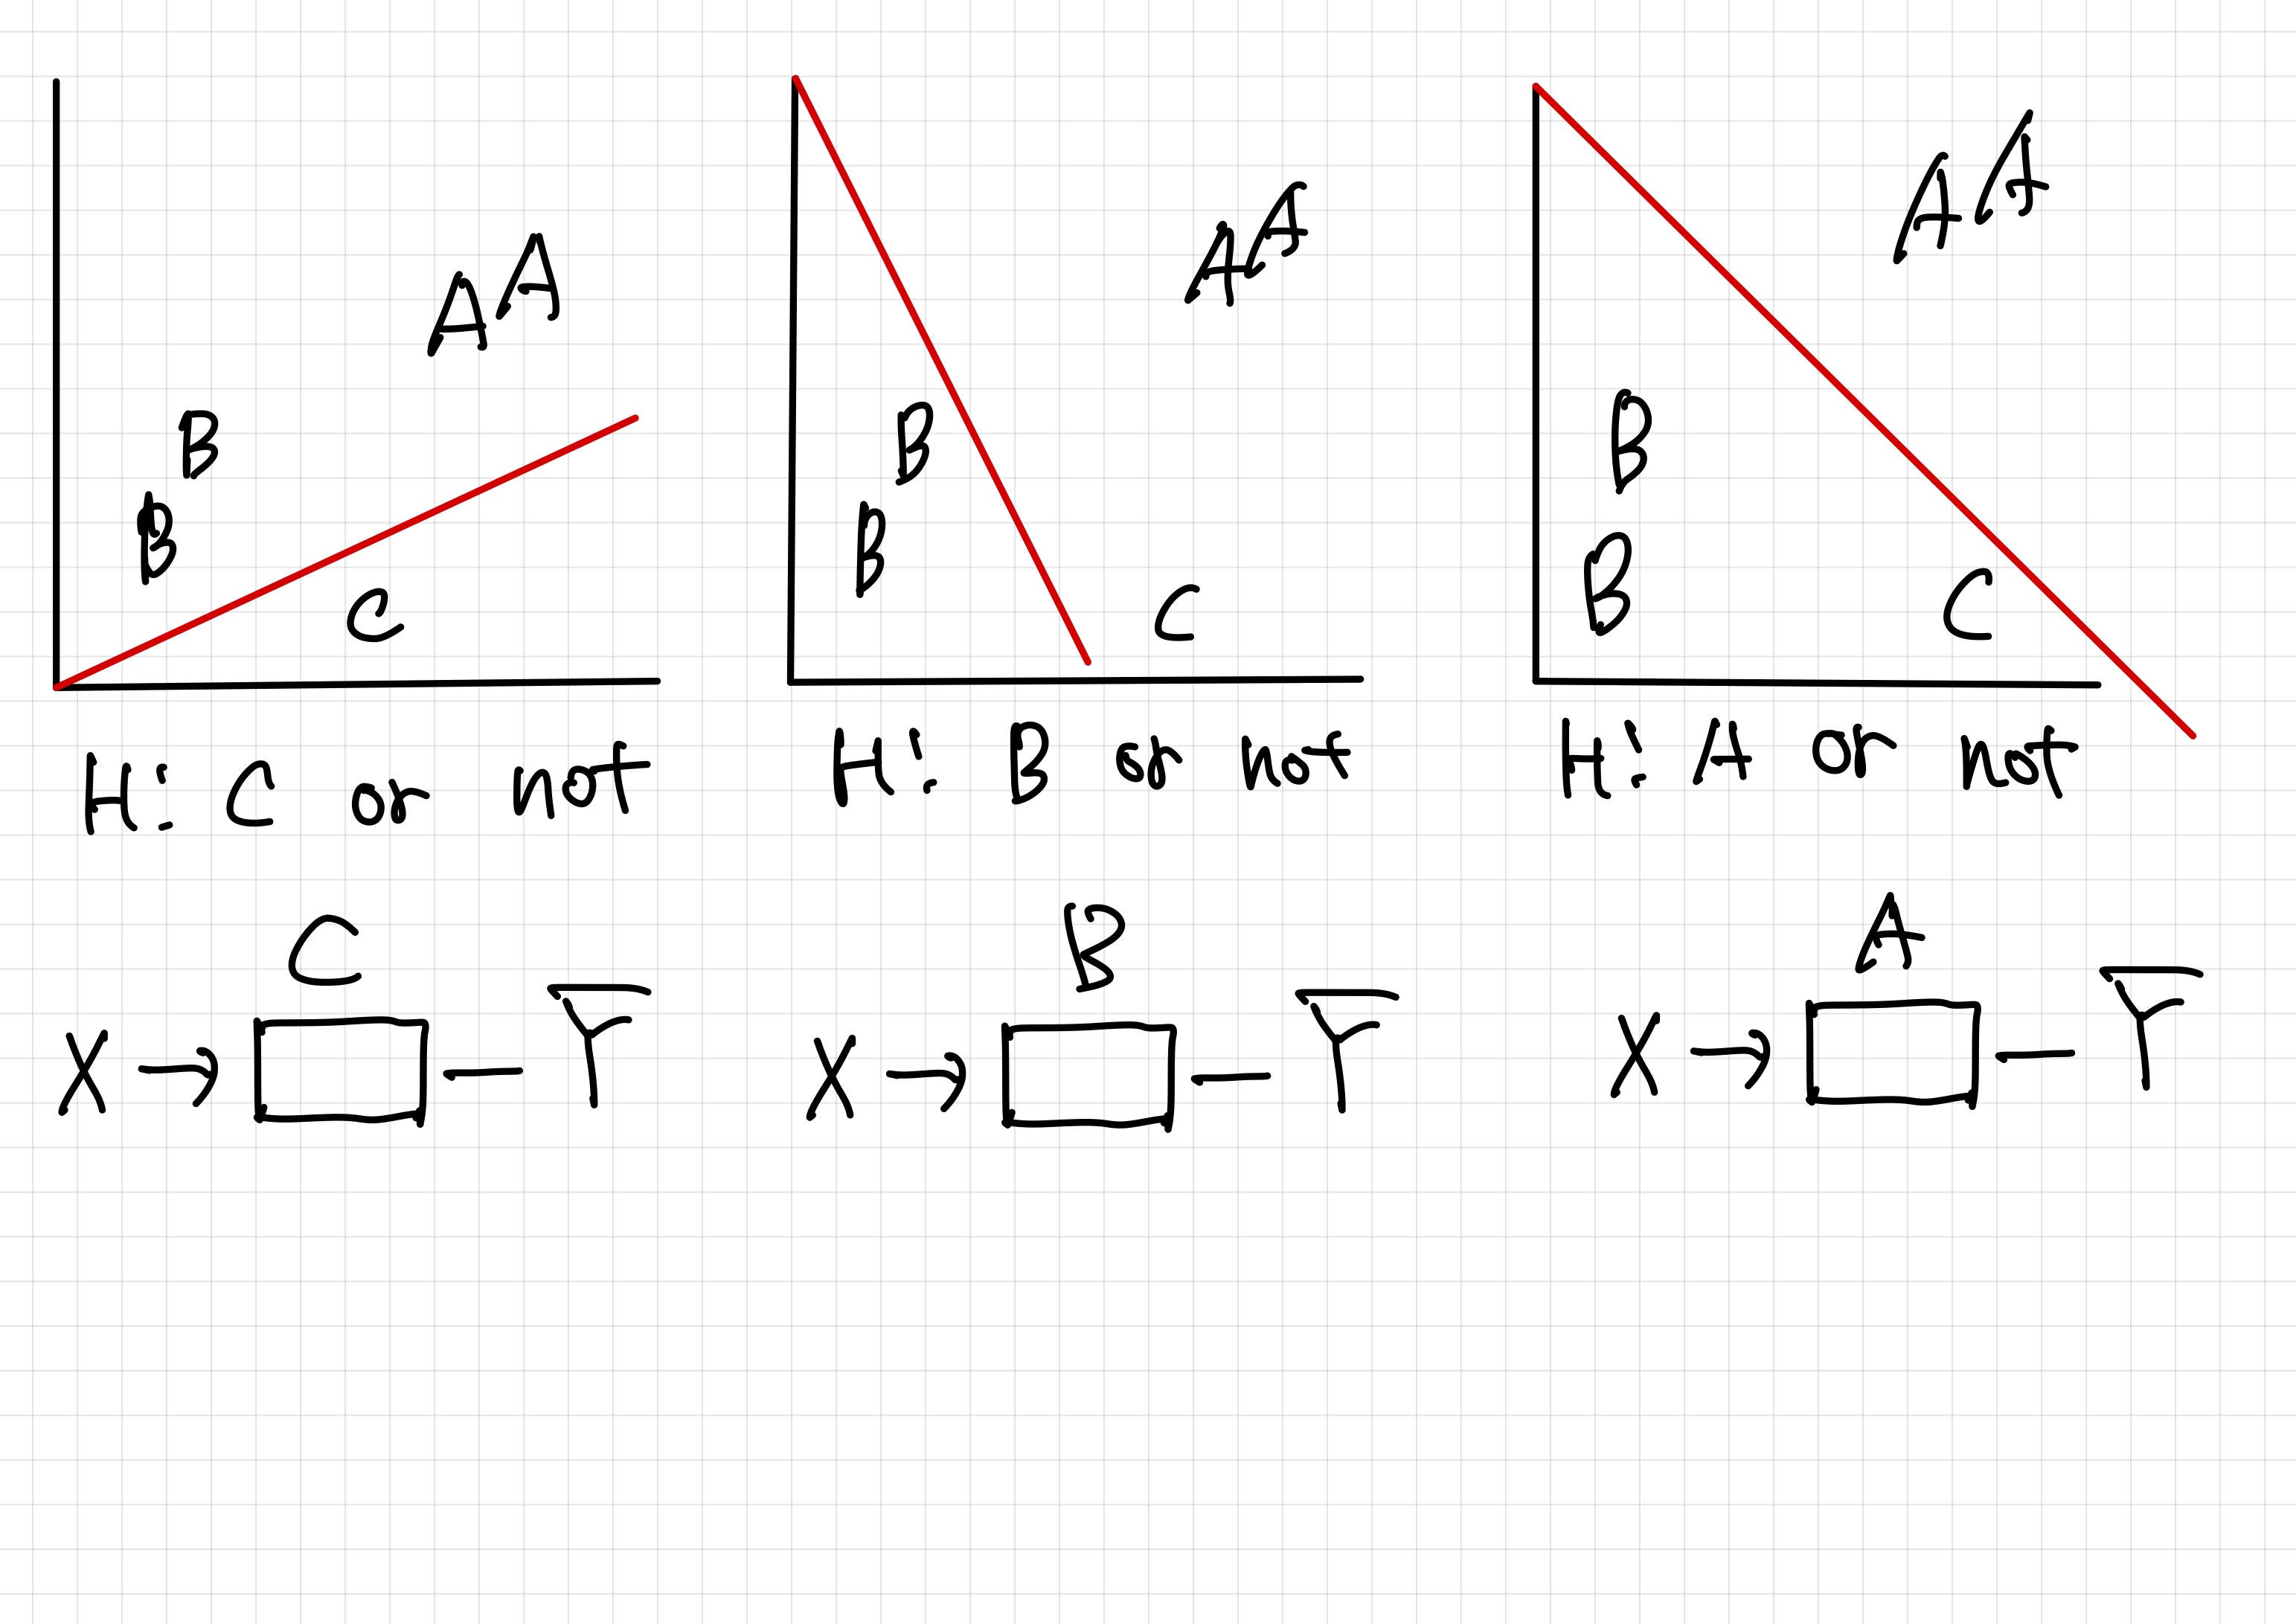 A A
B
B
C
H: C or not
C
X → Y
A A
B
B
C
H: B or not
B
X → Y
A A
B
B
C
H: A or not
A
X → Y